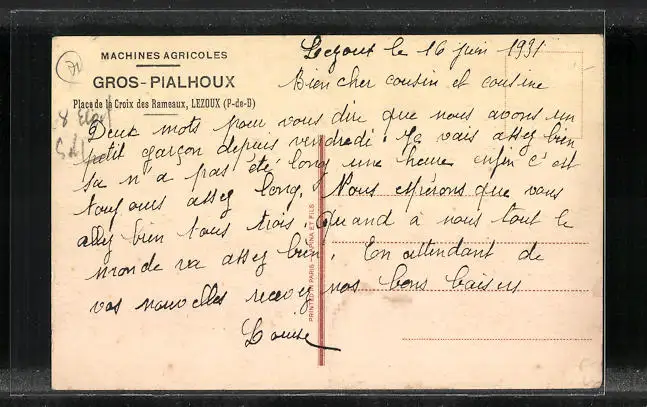 MACHINES AGRICOLES
GROS-PIALHOUX
Place de la Croix des Rameaux, LEZOUX (P-de-D)
Lezoux le 16 juin 1931
Bien cher cousin et cousine
Deux mots pour vous dire que nous avons un
petit garçon depuis vendredi. Je vais assez bien
sa n'a pas été long une heure enfin c'est
toujours assez long. Nous espérons que vous
allez bien tous trois. Quand à nous tout le
monde va assez bien. En attendant de
vos nouvelles recevez nos bons baisers
Louise
PRINTED IN PARIS - LAPINA ET FILS